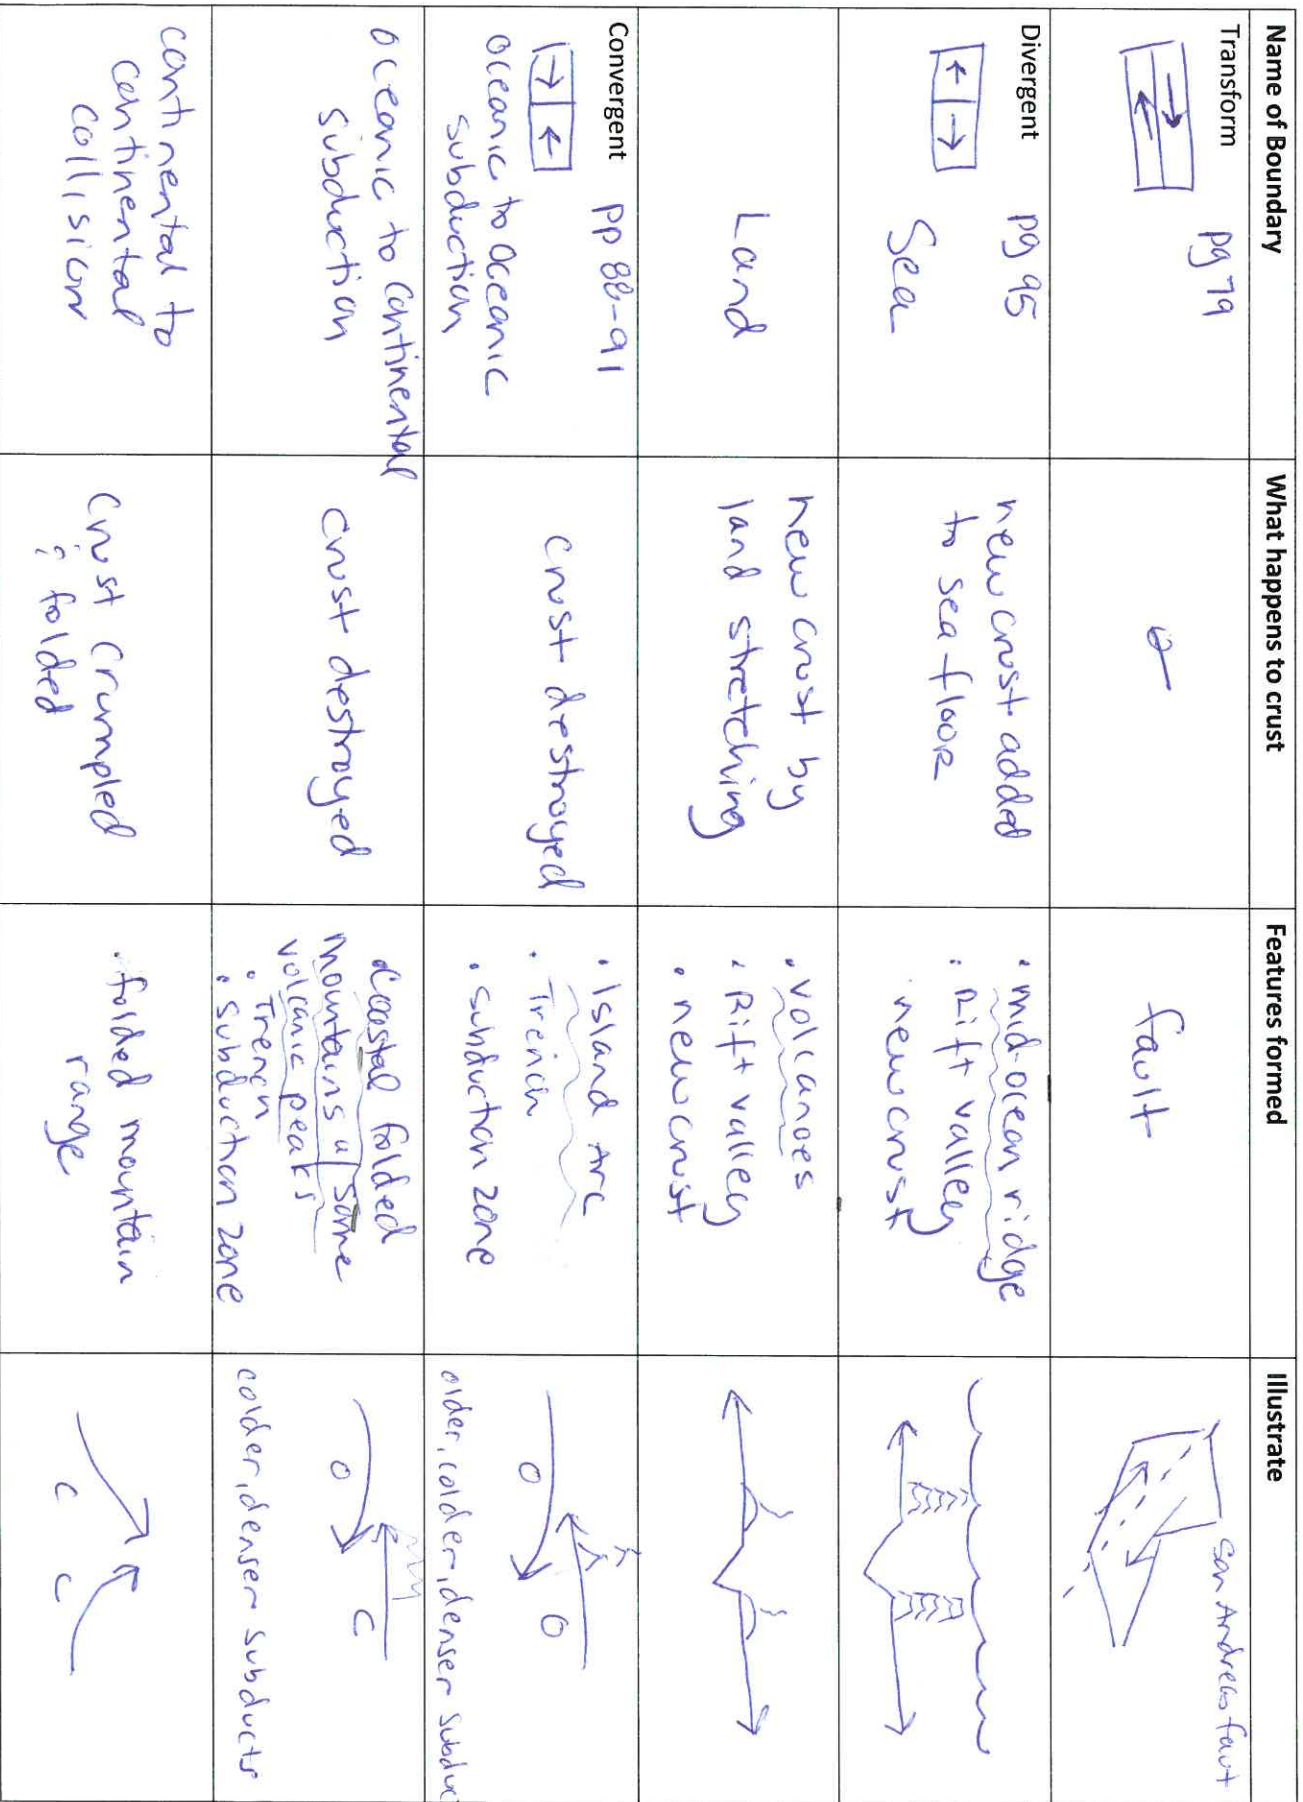 Name of Boundary
What happens to crust
Features formed
Illustrate
Transform
pg 79
fault
San Andreas faut
Divergent
pg 95
Sea
new crust added
to sea floor
• mid-ocean ridge
• Rift valley
new crust
Land
new crust by
land stretching
• volcanoes
• Rift valley
• new crust
Convergent
pp 88-91
oceanic to oceanic
subduction
crust destroyed
• Island Arc
• Trench
• subduction zone
O
O
older, colder, denser subduc
oceanic to continental
subduction
crust destroyed
• Coastal folded
mountains w/ some
volcanic peaks
• Trench
• subduction zone
O
C
colder, denser subducts
continental to
continental
collision
Crust crumpled
folded
• folded mountain
range
C
C